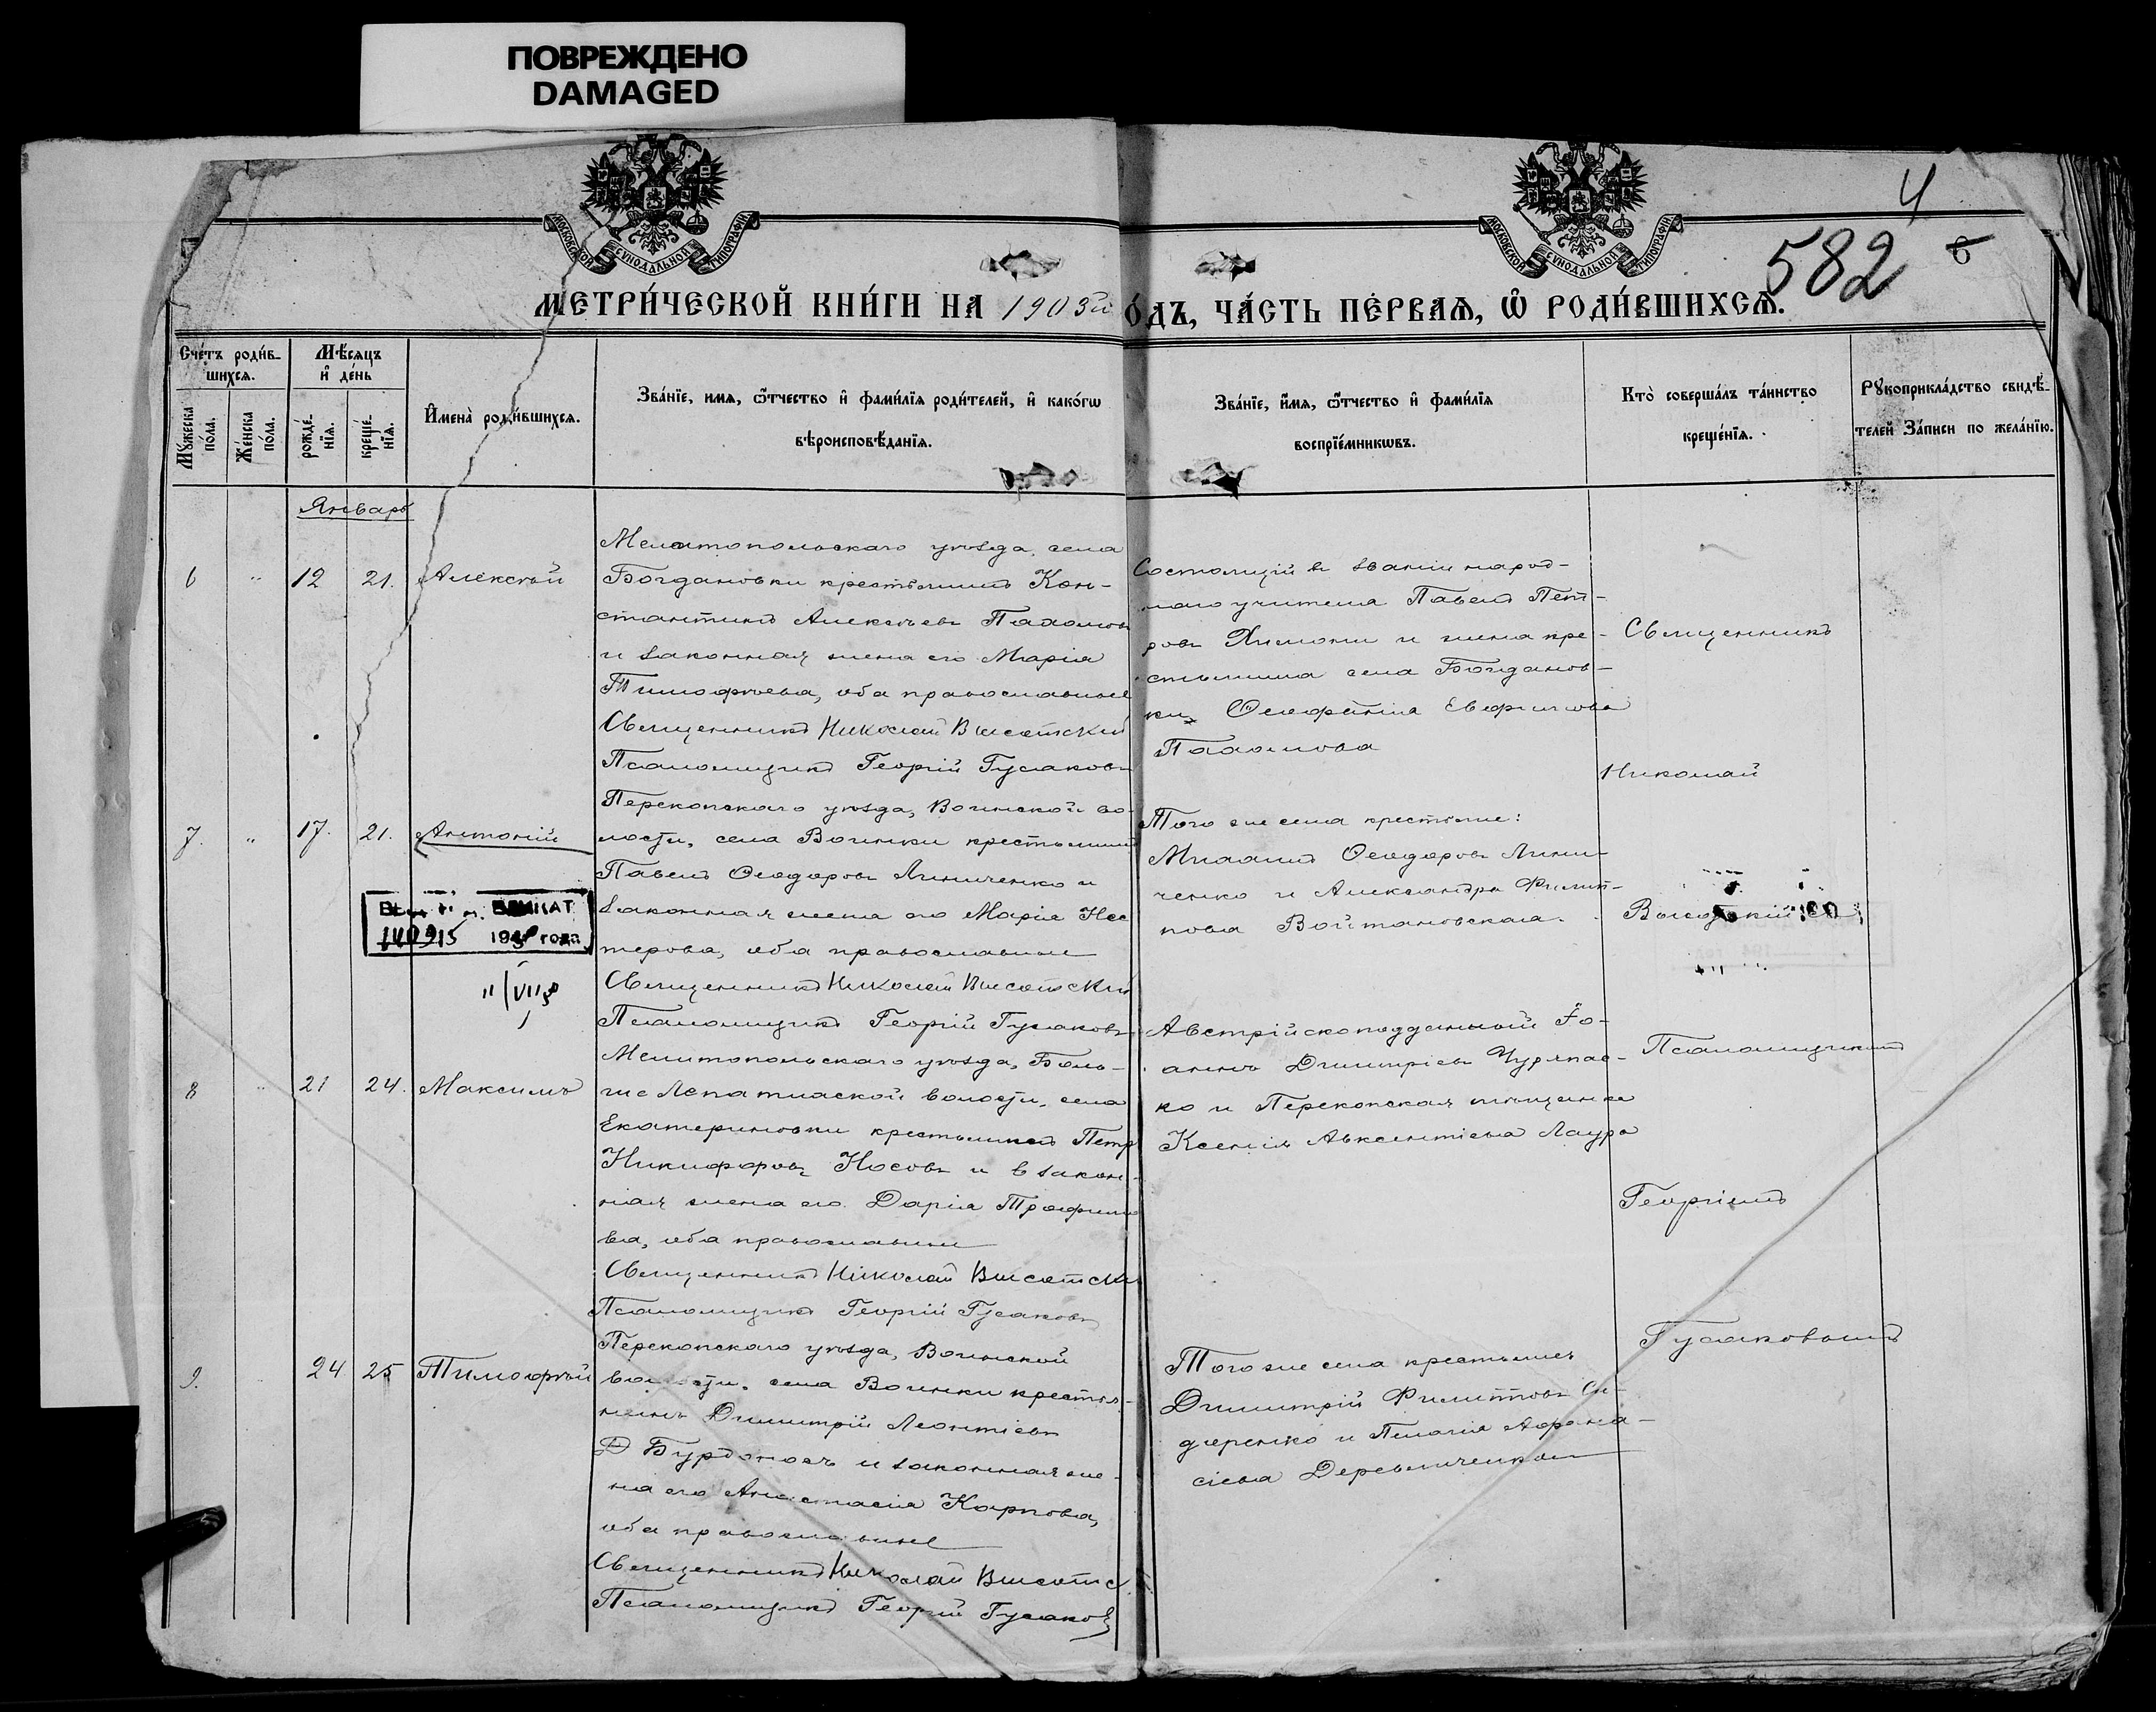 ПОВРЕЖДЕНО
DAMAGED
МОСКОВСКОЙ СѴНОДАЛЬНОЙ ТИПОГРАФІИ
МОСКОВСКОЙ СѴНОДАЛЬНОЙ ТИПОГРАФІИ
4
582
6
МЕТРИ́ЧЕСКОЙ КНИ́ГИ НА 1903й
О́ДЪ, ЧА́СТЬ ПЕ́РВАѦ, Ѡ҆ РОДИ́ВШИХСѦ.
Сче́тъ роди́в-
шихсѧ.
Мꙋ́жеска по́ла.
Же́нска по́ла.
Мѣ́сѧцъ
и҆ де́нь
рожде́-
нїѧ.
креще́-
нїѧ.
И҆мена̀ роди́вшихсѧ.
Зва́нїе, имѧ, ѻ҆́тчество и҆ фами́лїѧ роди́телей, и҆ како́гѡ
вѣроисповѣ́данїѧ.
Зва́нїе, и҆́мѧ, ѻ҆́тчество и҆ фами́лїѧ
воспрїе́мникѡвъ.
Кто̀ соверша́лъ та́инство
креще́нїѧ.
Рꙋкоприкла́дство свидѣ́-
телей За́писи по жела́нїю.
Январь
6 " 12 21. Алексѣй
Мелитопольскаго уѣзда, села
Богдановки крестьянинъ Кон-
стантинъ Алексѣевъ Пахомовъ
и законная жена его Марія
Тимофѣева, оба православные
Священникъ Николай Высотскій
Псаломщикъ Георгій Гусаковъ
Состоящій в званіи народ-
наго учителя Павелъ Пет-
ровъ и жена кре-
стьянина села Богданов-
ки Ѳеофанія
Пахомова
7. " 17. 21. Антоній
Перекопскаго уѣзда, Воинской во-
лости, села Воинки крестьянинъ
Павелъ Ѳеодоровъ Линиченко и
законная жена его Марія Нес
терова, оба православные
Священникъ Николай Высотскій
Псаломщикъ Георгій Гусаковъ
Того же села крестьяне:
Михаилъ Ѳеодоровъ Лини-
ченко и Александра Филип-
пова Войтановская.
194 года
8 " 21 24. Максимъ
Мелитопольскаго уѣзда, Боль-
ше Лепатиской волости, села
Екатериновки крестьянинъ Петръ
Никифоровъ Носовъ и в закон-
ная жена его Дарія Трофимо
ва, оба православные
Священникъ Николай Высотскій
Псаломщикъ Георгій Гусаковъ
Австрійскоподданный Іо-
аннъ Димитріевъ
ко и Перекопская мѣщанка
Ксенія Авксентіева Лаура
9. 24 25 Тимофѣй
Перекопскаго уѣзда, Воинской
волости, села Воинки крестья-
нинъ Димитрій Леонтіевъ
Бурдоносъ и законная же-
на его Анастасія Карпова,
оба православные
Священникъ Николай Высотс
Псаломщикъ Георгій Гусаковъ
Того же села крестьяне
Димитрій Филипповъ Си-
доренко и Пелагія Аѳана-
сіева Деревянченкова
Священникъ
Николай
Высотскій съ
Псаломщикомъ
Георгіемъ
Гусаковымъ